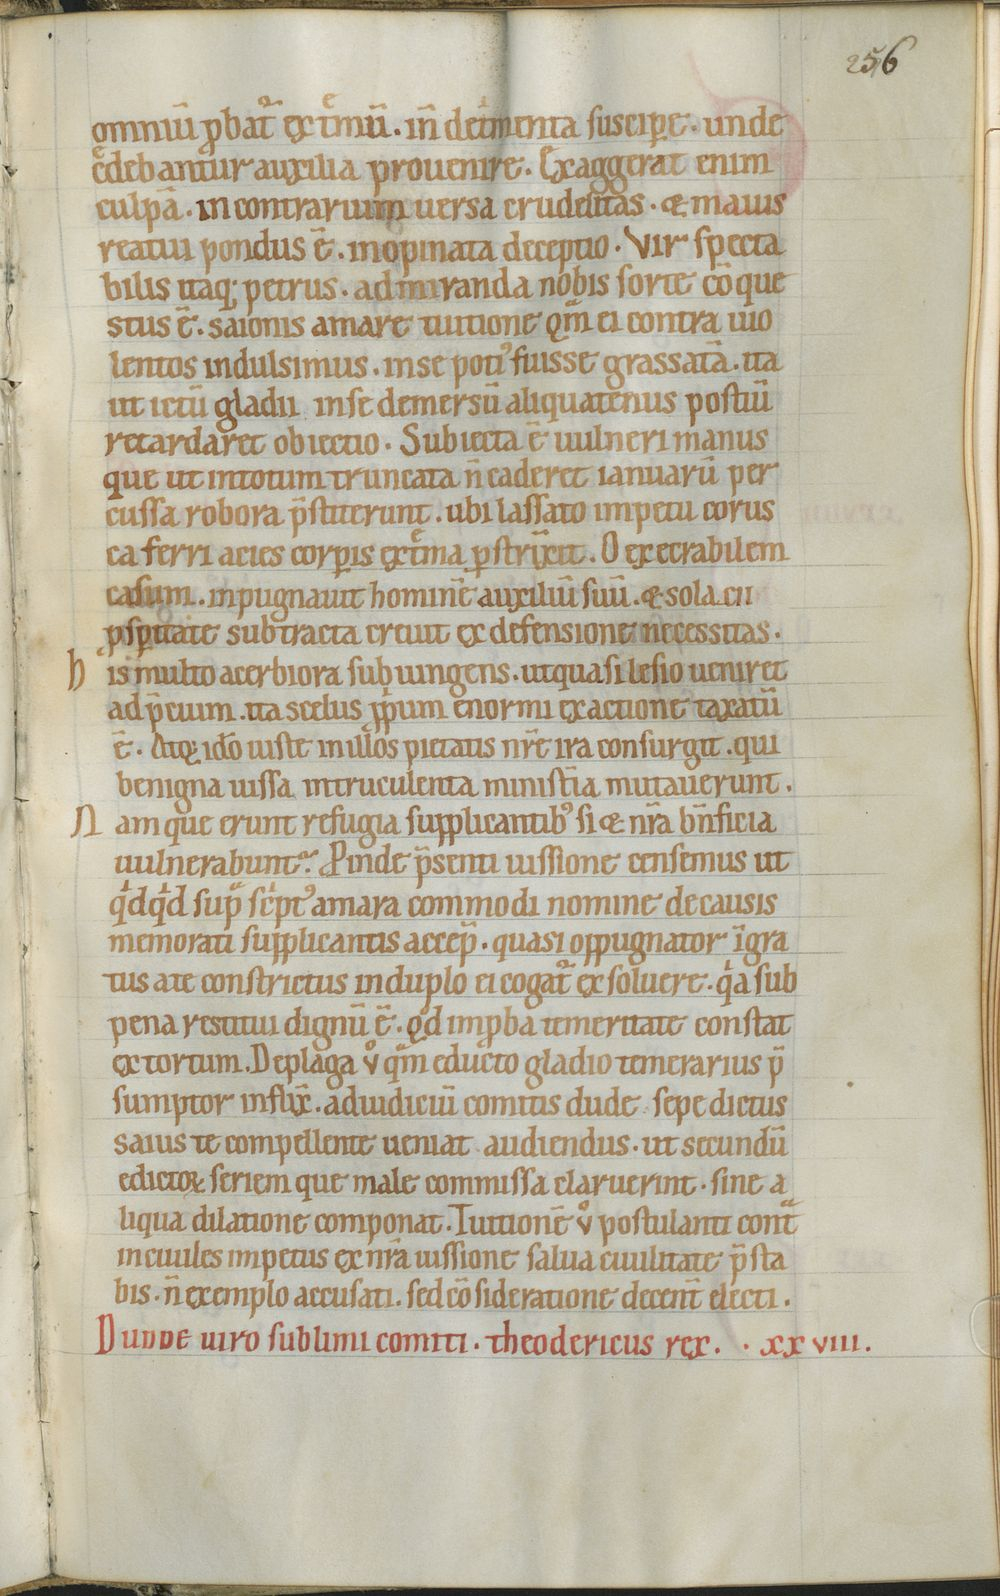 256
omniū ꝓbat᷑ extͤmū. in̄ detͥmenta suscipe. unde
c̄debantur auxilia prouenire. Exaggerat enim
culpā. incontrarium uersa crudelitas. & maius
reatui pondus ē. inopinata deceptio. Vir specta
bilis itaq; petrus. admiranda nobis sorte cōque
stus ē. saionis amare tuitione qͣm ei contra uio
lentos indulsimus. inse potiꝰ fuisse grassatā. ita
ut ictū gladii inse demersū aliquatenus postiū
retardaret obiectio. Subiecta ē uulneri manus
que ut intotum truncata n̄ caderet ianuarū per
cussa robora p̄stiterunt. ubi lassato impetu corus
ca ferri acies corꝑis extͤma ꝑstrīxit. O execrabilem
casum. inpugnauit hominē auxiliū suū. & sola cii
ꝓsꝑitate subtracta creuit ex defensione necessitas.
his multo acerbiora subiungens. ut quasi lesio ueniret
ad p̄cium. ita scelus ꝓpium enormi exactione taxatū
ē. Atqꝫ ido iuste in illos pietatis nr̄e ira consurgit. qui
benigna iussa intruculenta minist̄ia mutauerunt.
Nam que erunt refugia supplicantibꝰ si & nr̄a bn̄ficia
uulnerabunt? Pinde p̄senti iussione censemus ut
qͥdqͥd supͣ scͥptꝰ amara commodi nomine decausis
memorati supplicantis accep̄. quasi oppugnator īgra
tus ate constrictus induplo ei cogat᷑ exsoluere. qͥa sub
pena restitui dignū ē. qd̄ imꝓba temeritate constat
extortum. Deplaga v̊ qͣm educto gladio temerarius p̄
sumptor inflix̄. adiudiciū comitis dude sepe dictus
saius te compellente ueniat audiendus. ut secundū
edictoꝝ seriem que male commissa claruerint. sine a
liqua dilatione componat. Tuitionē v̊ postulanti contͣ
inciuiles impetus ex nr̄a iussione salua ciuilitate p̄sta
bis. n̄ exemplo accusati. sed cōsideratione decent̄ electi.
Dudde uiro sublimi comiti. theodericus rex. . xxviii.